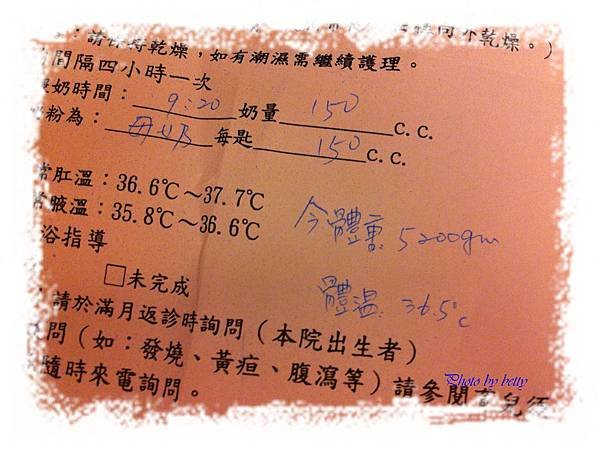 請保持乾燥，如有潮濕需繼續護理。
間隔四小時一次
奶時間：9:20 奶量 150 c.c.
粉為：母奶 每匙 150 c.c.
常肛溫：36.6℃～37.7℃
常腋溫：35.8℃～36.6℃
浴指導
今體重: 5200gm
□未完成
體溫: 36.5℃
請於滿月返診時詢問（本院出生者）
問（如：發燒、黃疸、腹瀉等）請參閱育兒須
隨時來電詢問。
Photo by betty